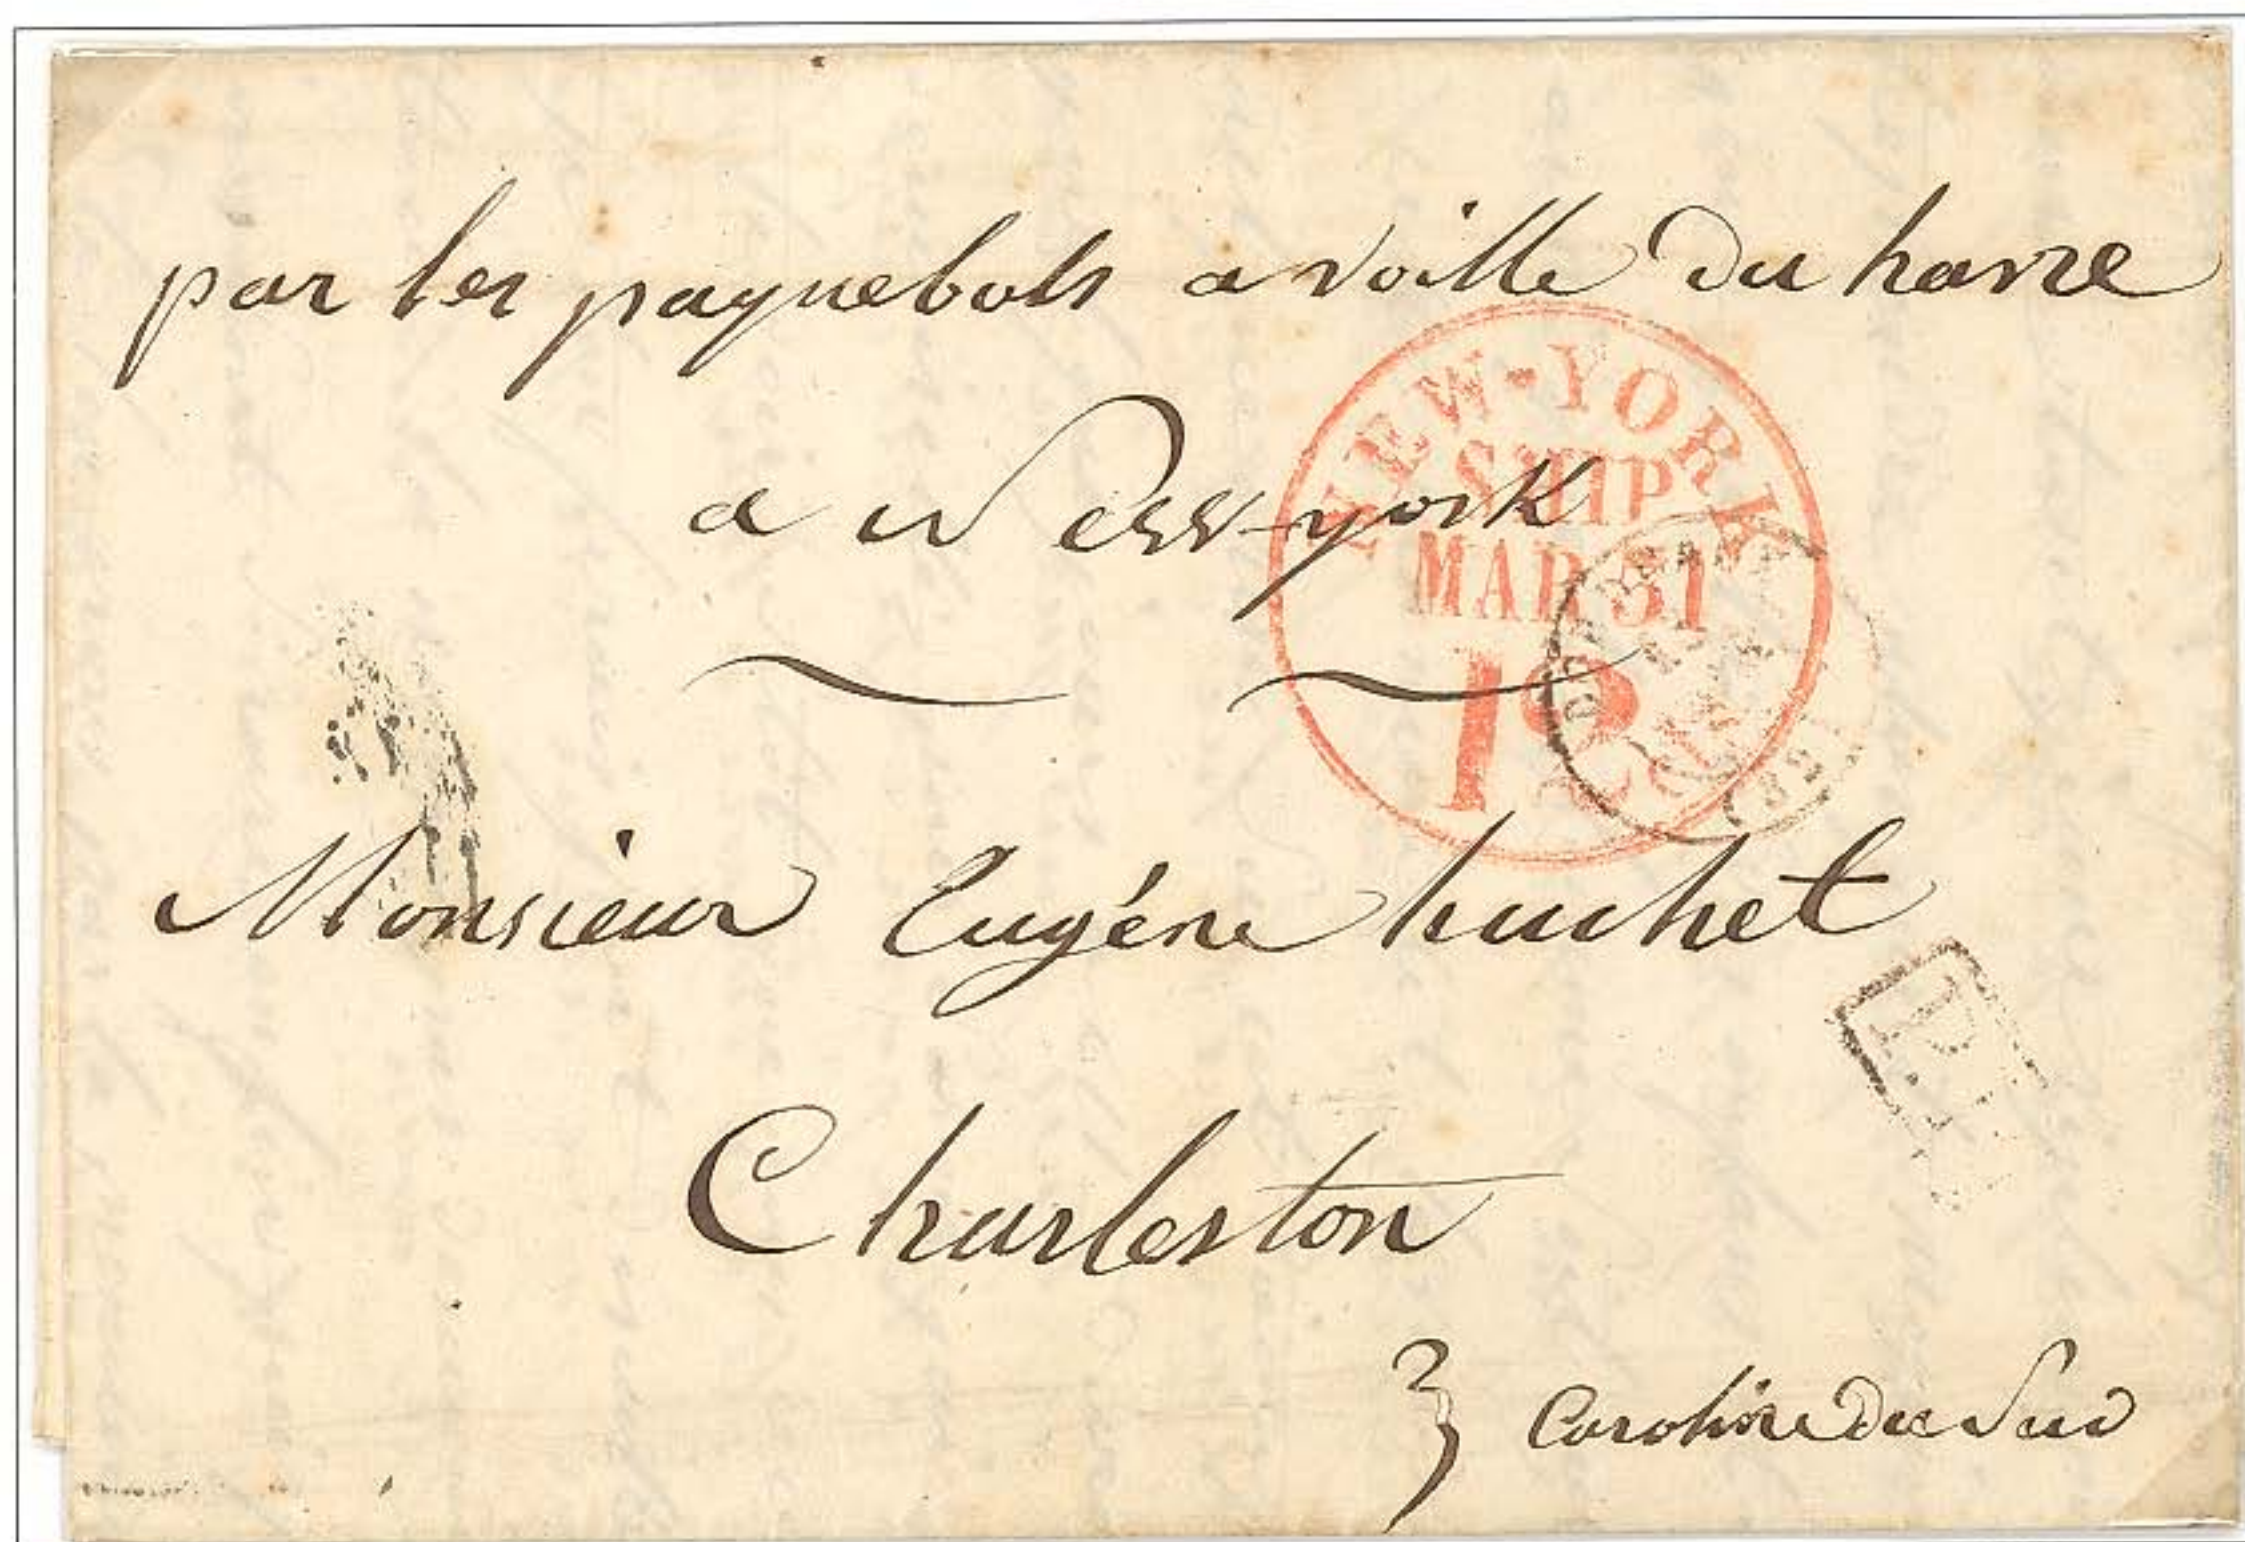 par les paquebots a voille du havre
a New-york
NEW-YORK
SHIP
MAR 31
Monsieur Eugéne huchet
Charleston
3 Caroline du Sud